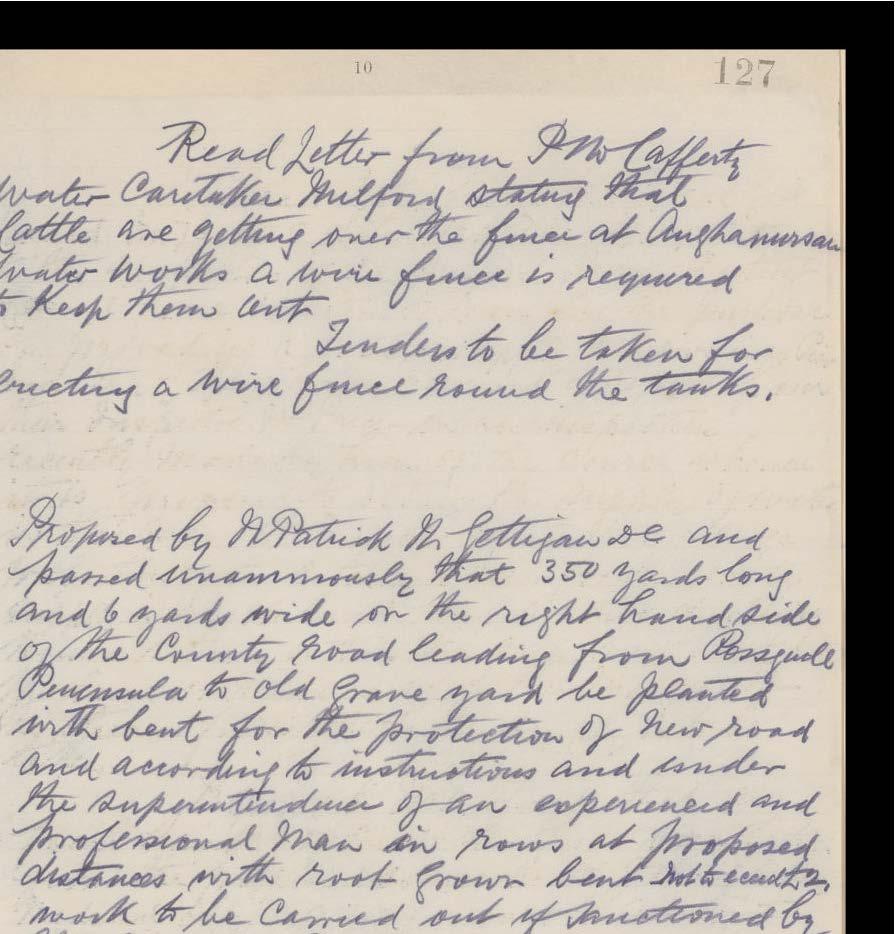 10
127
Read Letter from P McCafferty
Water Caretaker Milford stating that
Cattle are getting over the fence at
Water Works a wire fence is required
to Keep them out
Tenders to be taken for
erecting a wire fence round the tanks.
Proposed by Mr Patrick McGettigan DC and
passed unanimously that 350 yards long
and 6 yards wide on the right hand side
of the County road leading from
Peninsula to old Grave yard be planted
with bent for the protection of New road
and according to instructions and under
the superintendence of an experienced and
professional man in rows at proposed
distances with root grown bent not to exceed
work to be carried out if sanctioned by